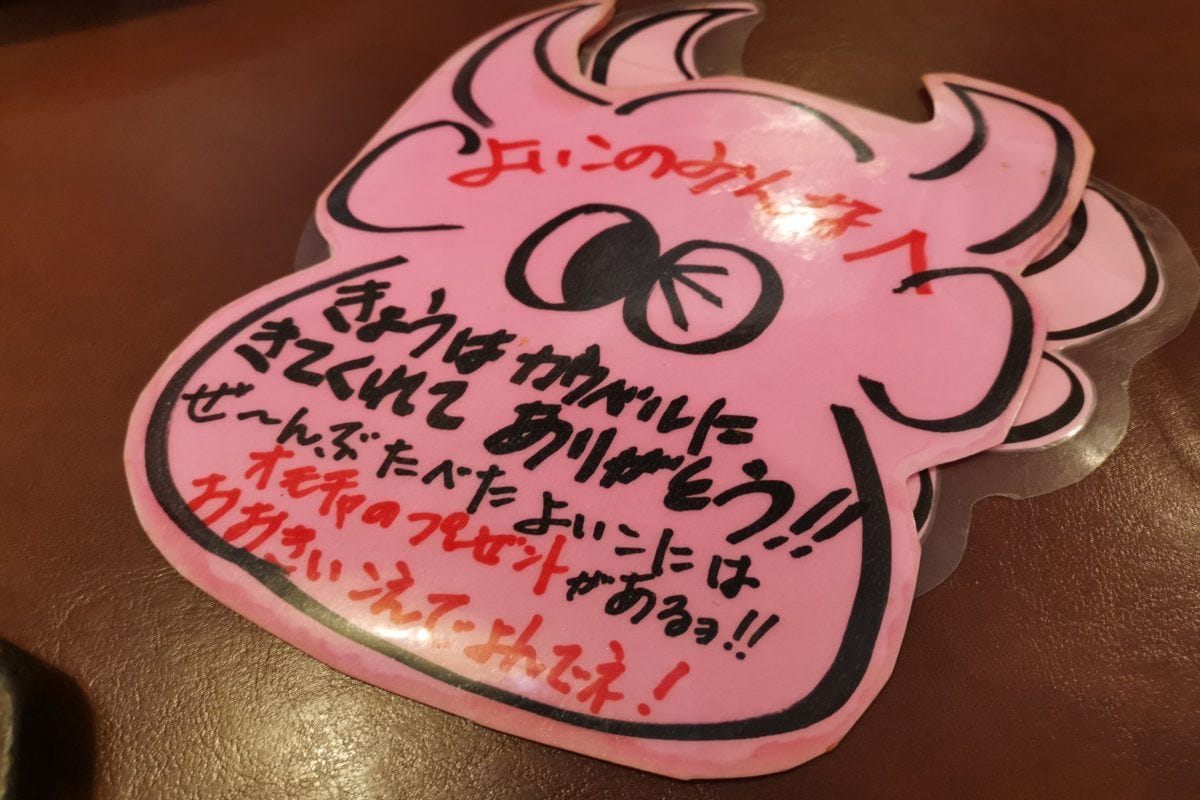 よいこのみんなへ
きょうは カウベルに
きてくれて ありがとう!!
ぜ〜んぶ たべた よいこには
オモチャの プレゼントがあるョ!!
おおきい こえで よんでネ!